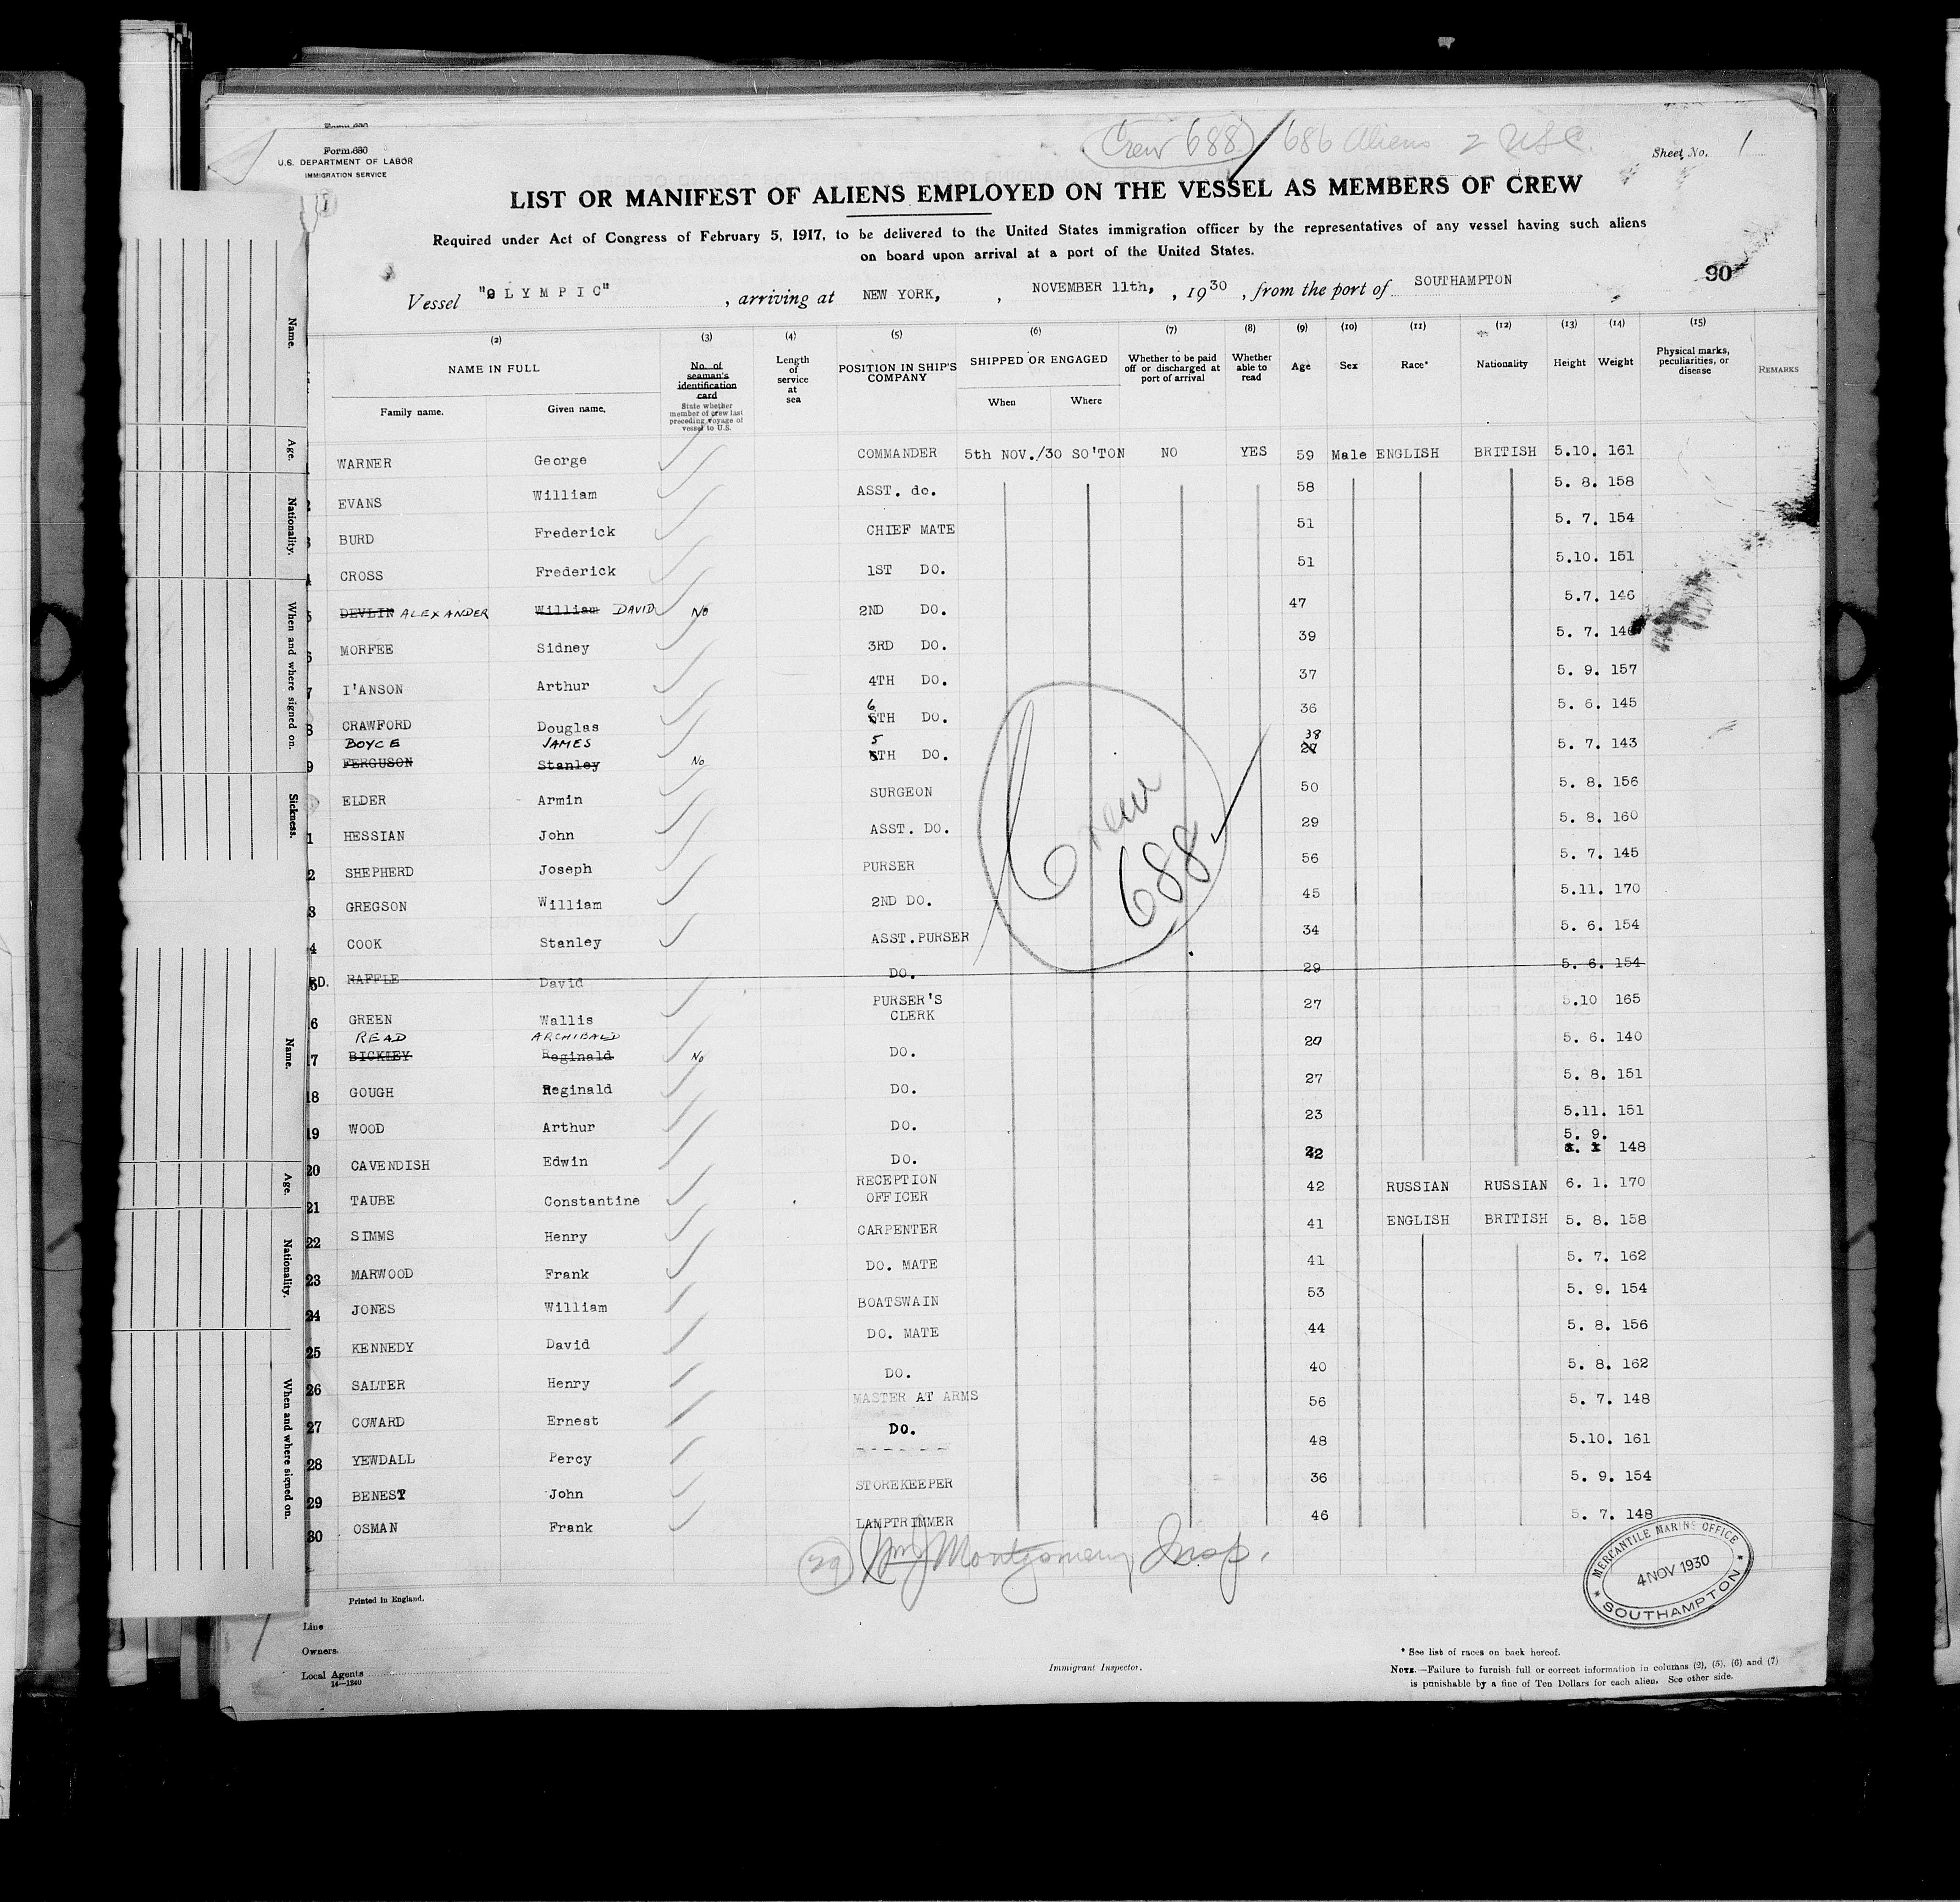 Form 630
Form 630
U.S. DEPARTMENT OF LABOR
IMMIGRATION SERVICE
Crew 688 / 686 Aliens 2 USC.
Sheet No. 1
LIST OR MANIFEST OF ALIENS EMPLOYED ON THE VESSEL AS MEMBERS OF CREW
Required under Act of Congress of February 5, 1917, to be delivered to the United States immigration officer by the representatives of any vessel having such aliens
on board upon arrival at a port of the United States.
90
Vessel "OLYMPIC" , arriving at NEW YORK, , NOVEMBER 11th, , 1930 , from the port of SOUTHAMPTON
(2) (3) (4) (5) (6) (7) (8) (9) (10) (11) (12) (13) (14) (15)
NAME IN FULL
Family name. Given name.
No. of seaman's identification card
State whether member of crew last preceding voyage of vessel to U.S.
Length of service at sea
POSITION IN SHIP'S COMPANY
SHIPPED OR ENGAGED
When Where
Whether to be paid off or discharged at port of arrival
Whether able to read
Age Sex Race* Nationality Height Weight
Physical marks, peculiarities, or disease
REMARKS
WARNER George COMMANDER 5th NOV./30 SO'TON NO YES 59 Male ENGLISH BRITISH 5.10. 161
EVANS William ASST. do. 58 5. 8. 158
BURD Frederick CHIEF MATE 51 5. 7. 154
CROSS Frederick 1ST DO. 51 5.10. 151
5 DEVLIN ALEXANDER William DAVID No 2ND DO. 47 5.7. 146
6 MORFEE Sidney 3RD DO. 39 5. 7. 146
7 I'ANSON Arthur 4TH DO. 37 5. 9. 157
8 CRAWFORD Douglas 6TH DO. 36 5. 6. 145
BOYCE JAMES 38
9 FERGUSON Stanley No 5TH DO. 27 5. 7. 143
ELDER Armin SURGEON 50 5. 8. 156
1 HESSIAN John ASST. DO. 29 5. 8. 160
2 SHEPHERD Joseph PURSER 56 5. 7. 145
3 GREGSON William 2ND DO. 45 5.11. 170
4 COOK Stanley ASST.PURSER 34 5. 6. 154
RD. RAFFLE David DO. 29 5. 6. 154
6 GREEN Wallis PURSER'S CLERK 27 5.10 165
READ ARCHIBALD
17 BICKLEY Reginald No DO. 20 5. 6. 140
18 GOUGH Reginald DO. 27 5. 8. 151
19 WOOD Arthur DO. 23 5.11. 151
20 CAVENDISH Edwin DO. 5. 9. 148
21 TAUBE Constantine RECEPTION OFFICER 42 RUSSIAN RUSSIAN 6. 1. 170
22 SIMMS Henry CARPENTER 41 ENGLISH BRITISH 5. 8. 158
23 MARWOOD Frank DO. MATE 41 5. 7. 162
24 JONES William BOATSWAIN 53 5. 9. 154
25 KENNEDY David DO. MATE 44 5. 8. 156
26 SALTER Henry DO. 40 5. 8. 162
27 COWARD Ernest MASTER AT ARMS 56 5. 7. 148
28 YEWDALL Percy DO. 48 5.10. 161
29 BENEST John STOREKEEPER 36 5. 9. 154
30 OSMAN Frank LAMPTRIMMER 46 5. 7. 148
Crew
688
29 Wm J Montgomery Insp.
MERCANTILE MARINE OFFICE
4 NOV 1930
SOUTHAMPTON
Printed in England.
Line
Owners
Local Agents
14—1240
Immigrant Inspector.
* See list of races on back hereof.
NOTE.—Failure to furnish full or correct information in columns (2), (5), (6) and (7)
is punishable by a fine of Ten Dollars for each alien. See other side.
Name.
Age.
Nationality.
When and where signed on.
Sickness.
Name.
Age.
Nationality.
When and where signed on.